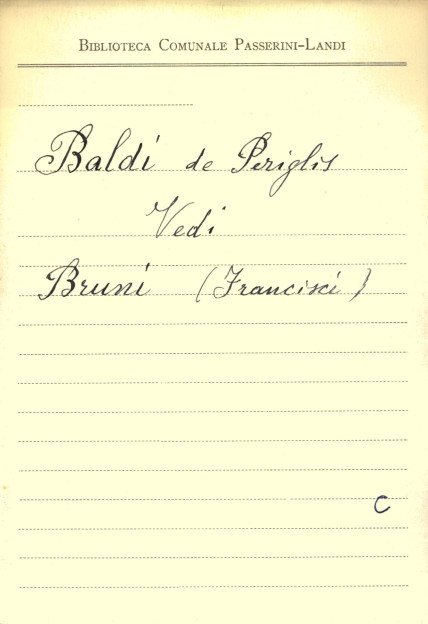 Biblioteca Comunale Passerini-Landi
Baldi de Periglis
Vedi
Bruni (Francisci)
C